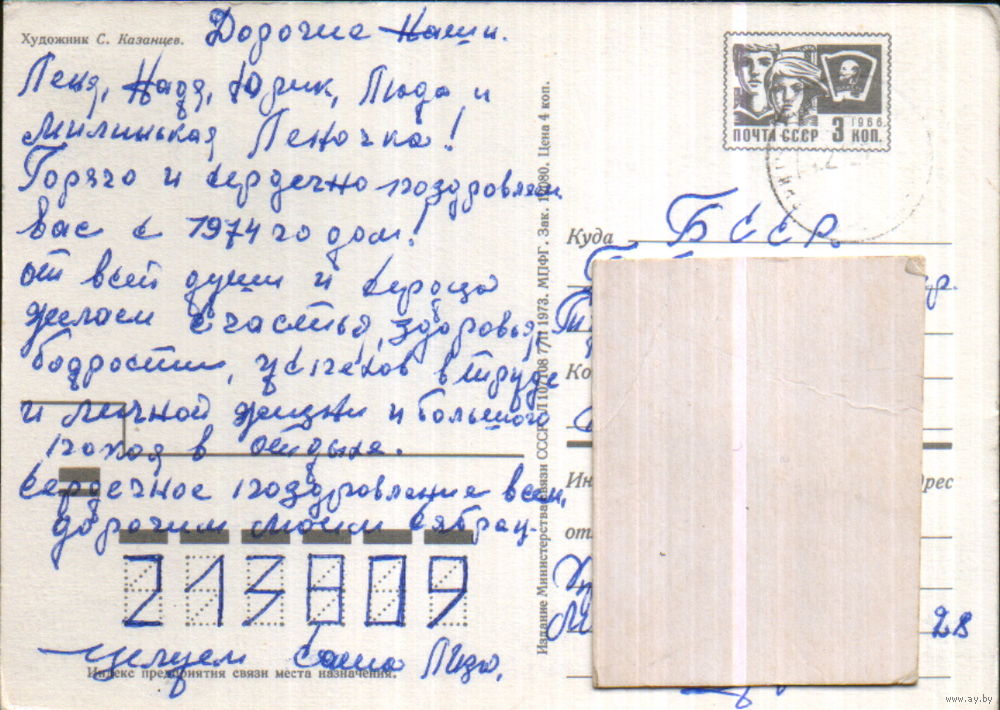 Художник С. Казанцев.
Дорогие наши.
Леня, Надя, Юрик, Люда и
милинькая Леночка!
Горячо и сердечно поздровляем
вас с 1974 годом!
от всей души и сердца
желаем счастья, здоровья,
бодрости, успехов в труде
и личной жизни и большого
покоя в отдыхе.
сердечное поздровление всем,
дорогим моим сябрам.
213809
целуем Саша Лиза.
Индекс предприятия связи места назначения.
Издание Министерства связи СССР. 7/III 1973. МПФГ. Зак. Цена 4 коп.
ПОЧТА СССР 3 КОП.
1966
Куда БССР
Ко
Ин
рес
от
28
www.ay.by